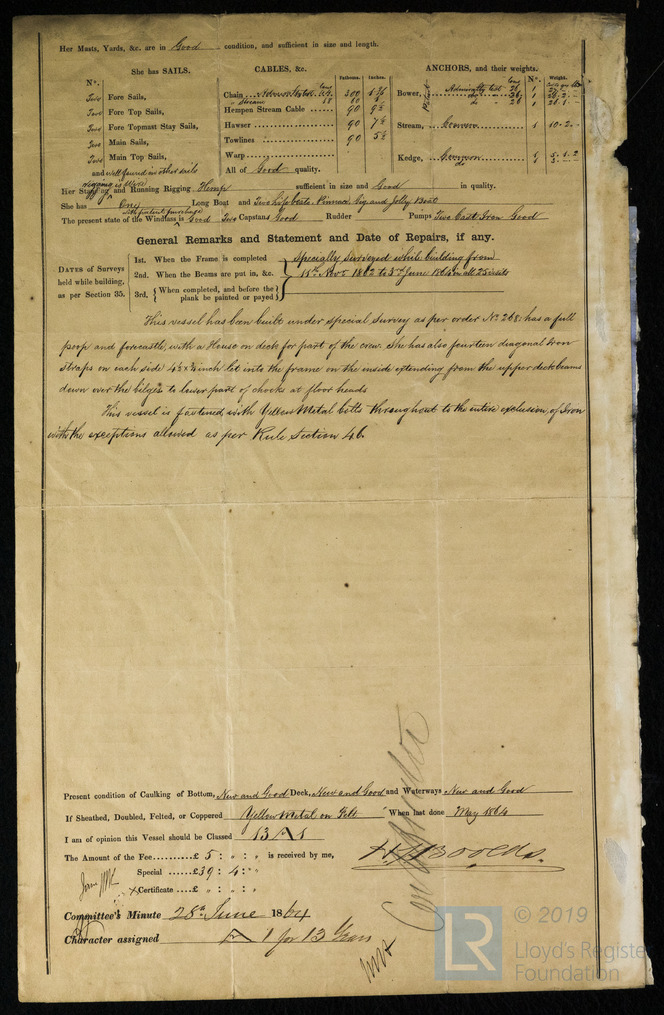 Her Masts, Yards, &c. are in Good condition, and sufficient in size and length.
She has SAILS.
CABLES, &c.
ANCHORS, and their weights.
N°.
Fathoms.
Inches.
N°.
Weight.
Two Fore Sails,
Two Fore Top Sails,
Two Fore Topmast Stay Sails,
Two Main Sails,
Two Main Top Sails,
and well found in other sails
Chain 300
" Stream 60
Hempen Stream Cable ...... 90 9½
Hawser 90 7½
Towlines 90 5½
Warp
All of Good quality.
Bower, Admiralty test 1
1
1
Stream, Common 1 10 . 2 . -
Kedge, Common 1 5 . 1 . 2
do
Her Standing and Running Rigging Hemp sufficient in size and Good in quality.
She has One Long Boat and Two Lifeboats. Pinnace Gig and Jolly Boat
with patent purchase
The present state of the Windlass is Good Two Capstans Good Rudder Pumps Two Cast Iron Good
General Remarks and Statement and Date of Repairs, if any.
DATES of Surveys held while building, as per Section 35.
1st. When the Frame is completed
2nd. When the Beams are put in, &c.
3rd. { When completed, and before the plank be painted or payed }
Specially Surveyed while building from
18th Nov 1862 to 3rd June 1864 in all 25 visits
This vessel has been built under special Survey as per order No 268: has a full
poop and forecastle, with a House on deck for part of the crew. She has also fourteen diagonal Iron
straps on each side 4½ x ¾ inch let into the frame on the inside extending from the upper deck beams
down over the bilges to lower part of chocks at floor heads.
This vessel is fastened with Yellow Metal bolts throughout to the entire exclusion of Iron
with the exceptions allowed as per Rule Section 46.
Present condition of Caulking of Bottom, New and Good Deck, New and Good and Waterways New and Good
If Sheathed, Doubled, Felted, or Coppered Yellow Metal on Felt When last done May 1864
I am of opinion this Vessel should be Classed 13 A 1
The Amount of the Fee.........£ 5 : " : " is received by me,
Special ......£39 : 4 : "
Certificate ....£ " : " : "
Committee's Minute 28th June 1864
Character assigned A 1 for 13 Years
LR
© 2019
Lloyd's Register
Foundation